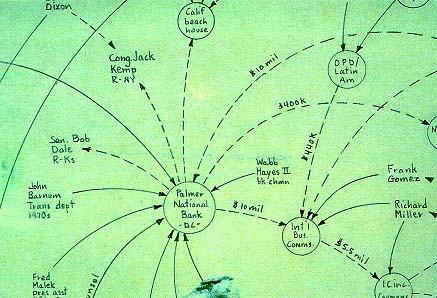 Dixon
Calif
beach
house
Cong. Jack
Kemp
R-NY
$10 mil
OPD/
Latin
Am
$400K
$440K
Sen. Bob
Dole
R-Ks
Webb
Hayes II
bk chmn
Frank
Gomez
John
Barnum
Trans dept
1970s
Palmer
National
Bank
-DC-
$10 mil
Richard
Miller
Int'l
Bus.
Comms.
$5.5 mil
IC Inc.
Fred
Malek
pres asst